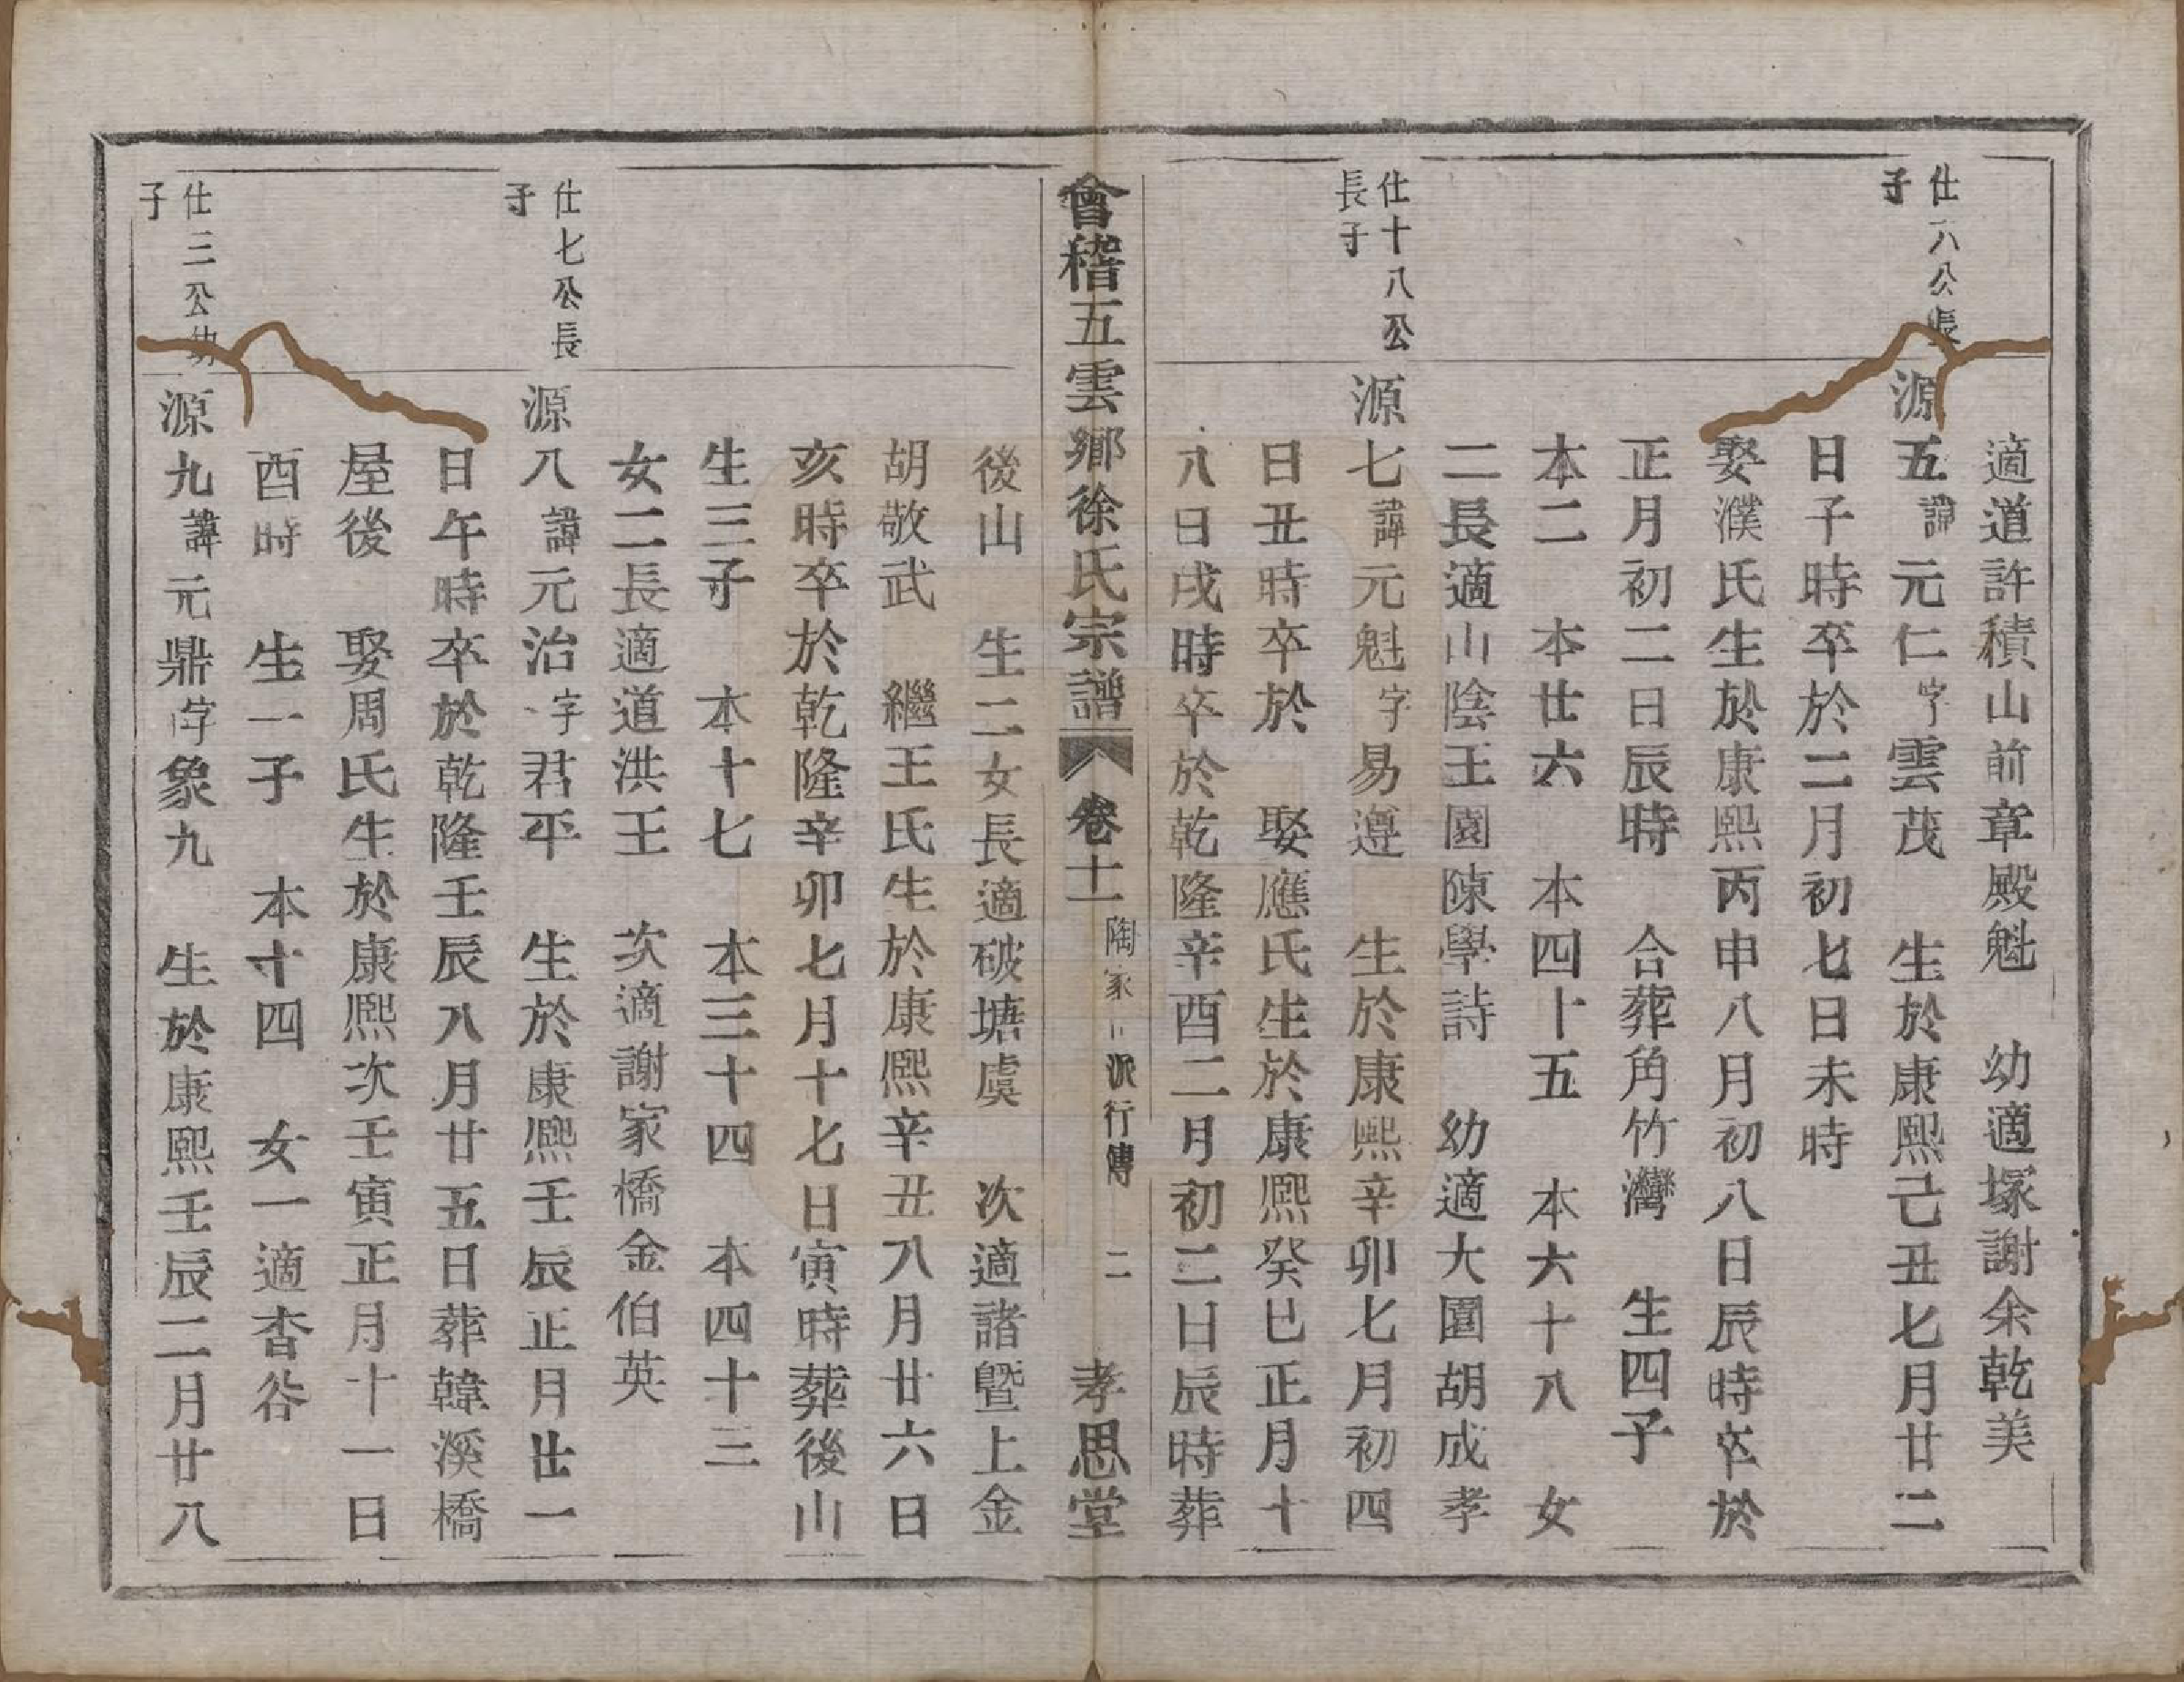 適道許積山前章殿魁　幼適塚謝余乾美
仕六公長子
源五諱元仁字雲茂　生於康熙己丑七月廿二
日子時卒於二月初七日未時
娶濮氏生於康熙丙申八月初八日辰時卒於
正月初二日辰時　合葬角竹灣　生四子
本二　本廿六　本四十五　本六十八　女
二長適山陰王園陳學詩　幼適大園胡成孝
仕十八公長子
源七諱元魁字易遵　生於康熙辛卯七月初四
日丑時卒於　娶應氏生於康熙癸巳正月十
八日戌時卒於乾隆辛酉二月初二日辰時葬
會稽五雲鄉徐氏宗譜　卷十一　陶家　派行傳　二　孝思堂
後山　生二女長適破塘虞　次適諸暨上金
胡敬武　繼王氏生於康熙辛丑八月廿六日
亥時卒於乾隆辛卯七月十七日寅時葬後山
生三子　本十七　本三十四　本四十三
女二長適道洪王　次適謝家橋金伯英
仕七公長子
源八諱元治字君平　生於康熙壬辰正月廿一
日午時卒於乾隆壬辰八月廿五日葬韓溪橋
屋後　娶周氏生於康熙次壬寅正月十一日
酉時　生一子　本十四　女一適杳谷
仕三公幼子
源九諱元鼎字象九　生於康熙壬辰二月廿八